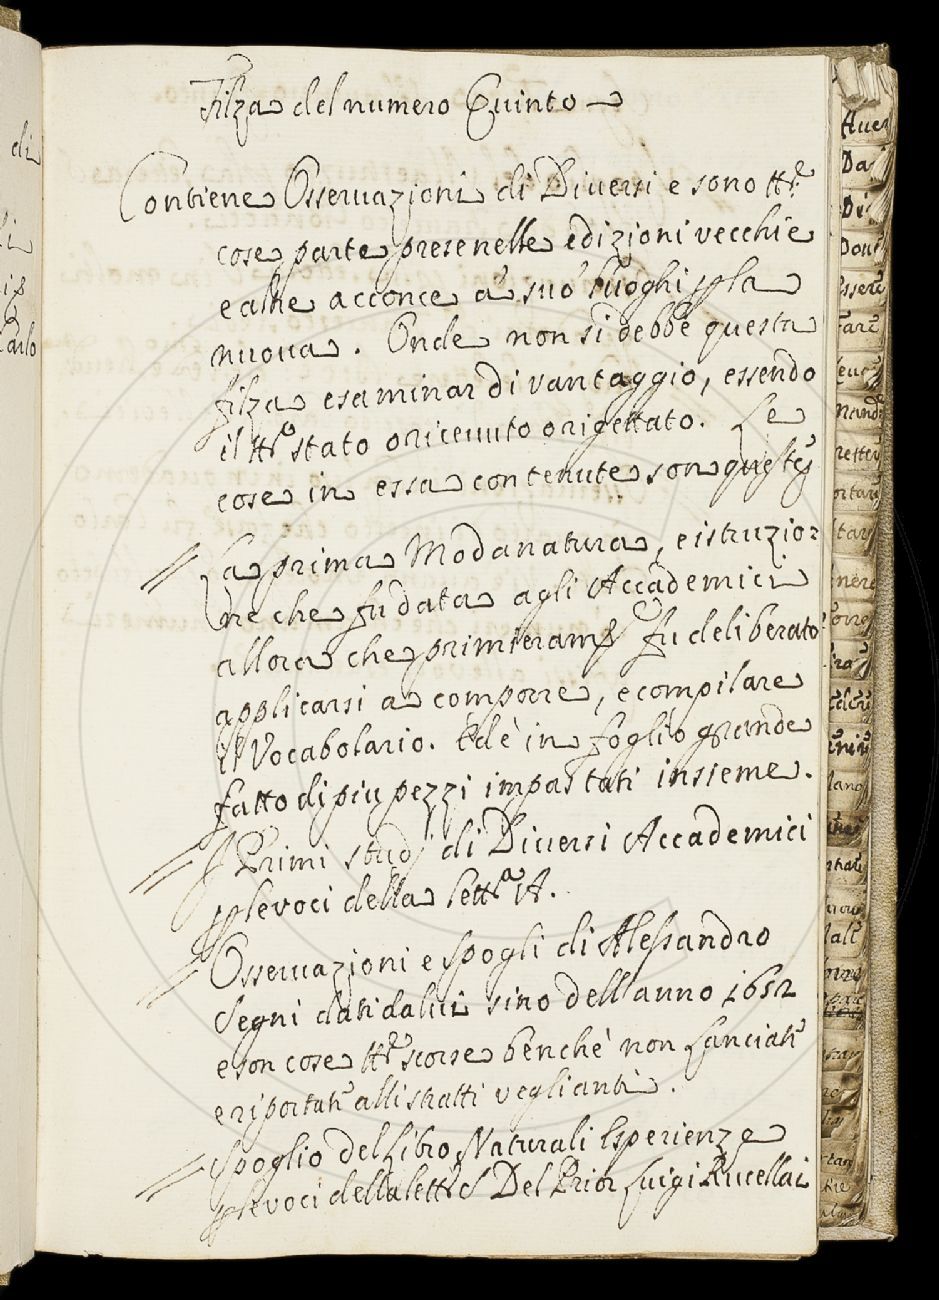 Filza del numero Quinto
Contiene Osservazioni di Diversi e sono tt.e
cose parte prese nelle edizioni vecchie
e altre acconce a' suo' luoghi p la
nuova. Onde non si debbe questa
filza esaminar di vantaggio, essendo
il tt.o stato o ricevuto o rigettato. Le
cose in essa contenute son queste
La prima Modanatura, e istruzio=
ne che fu data agli Accademici
allora che primieram.e fu deliberato
applicarsi a comporre, e compilare
il Vocabolario. Ed è in foglio grande
fatto di piu pezzi impastati insieme.
I Primi studj di Diversi Accademici
p le voci della lett.a A.
Osservazioni e spogli di Alessandro
Segni dati da lui sino dell'anno 1652
e son cose tt.e scorse benchè non lanciate
e riportate alli stratti veglianti.
Spoglio del Libro Naturali Esperienze
p le voci della lett.a S Del Prior Luigi Rucellai
di
li
Carlo
Aver
Da
Di
Don
Essere
Fare